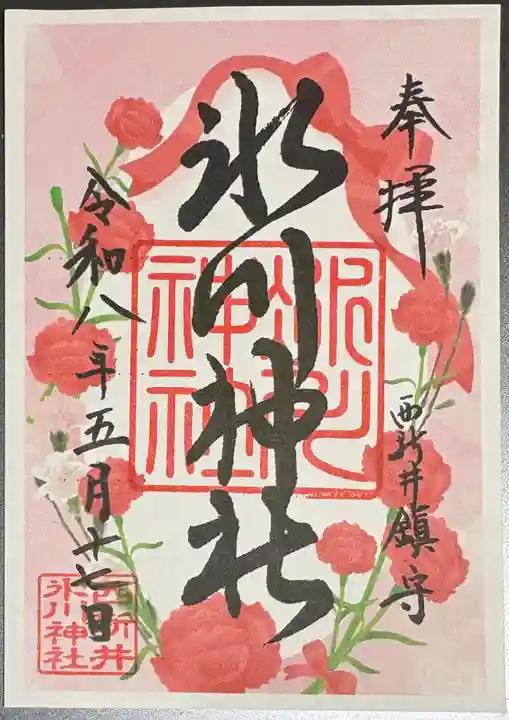 奉拝
西新井鎮守
氷川神社
氷川神社
令和八年五月十七日
西新井
氷川神社